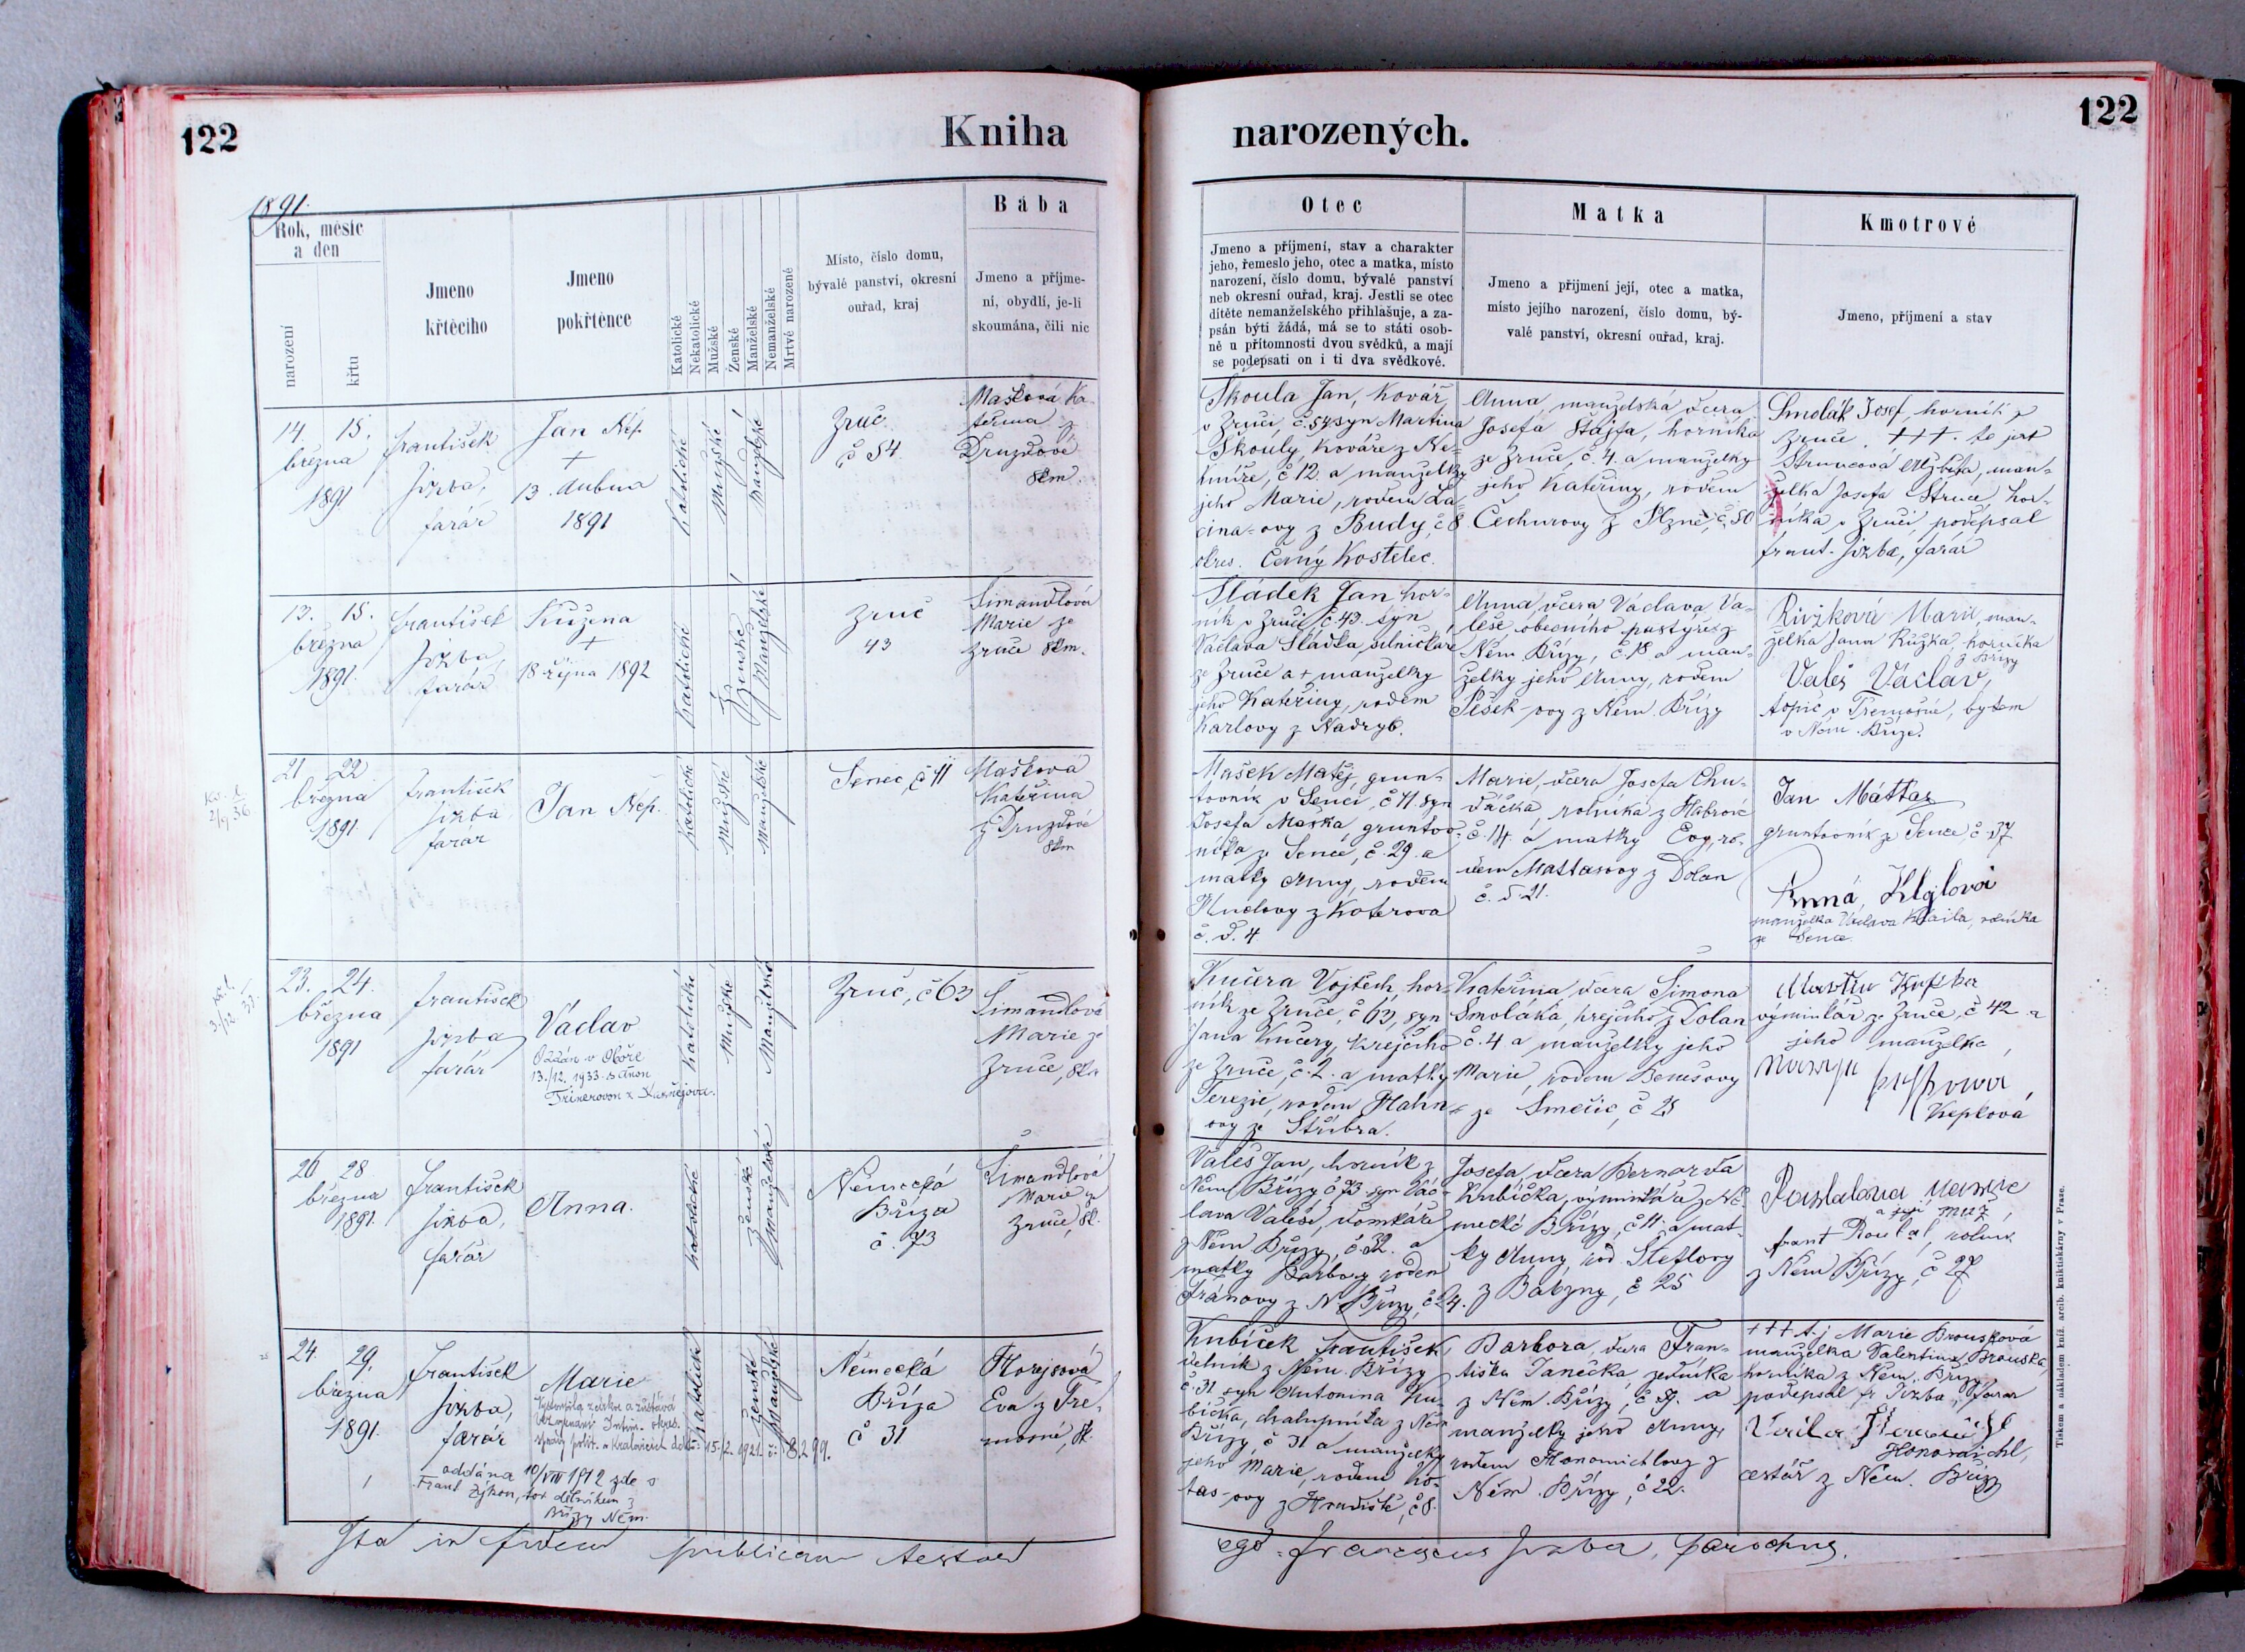 122
Kniha
narozených.
122
1891.
Rok, měsíc
a den
narození
křtu
Jmeno
křtěcího
Jmeno
pokřtěnce
Katolické
Nekatolické
Mužské
Ženské
Manželské
Nemanželské
Mrtvě narozené
Místo, číslo domu,
bývalé panství, okresní
ouřad, kraj
Bába
Jmeno a příjme-
ní, obydlí, je-li
skoumána, čili nic
Otec
Jmeno a příjmení, stav a charakter
jeho, řemeslo jeho, otec a matka, místo
narození, číslo domu, bývalé panství
neb okresní ouřad, kraj. Jestli se otec
dítěte nemanželského přihlašuje, a za-
psán býti žádá, má se to státi osob-
ně u přítomnosti dvou svědků, a mají
se podepsati on i ti dva svědkové.
Matka
Jmeno a příjmení její, otec a matka,
místo jejího narození, číslo domu, bý-
valé panství, okresní ouřad, kraj.
Kmotrové
Jmeno, příjmení a stav
14. 15.
března
1891
František
Jizba,
farář
Jan Nep.
+
13. dubna
1891
Katolické
Mužské
Manželské
Zruč
č 54
Mašková Ka-
teřina z
Druzdové
skm.
Skoula Jan, kovář
v Zruči, č. 54 syn Martina
Skouly, kováře z Ne-
kmíře, č 12. a manželky
jeho Marie, rodem La-
cina-ovy z Budy, č 8
okres. Černý Kostelec.
Anna, manželská dcera
Josefa Štajfa, horníka
ze Zruče, č. 4. a manželky
jeho Kateřiny, rodem
Čechurovy z Plzně, č. 50
Smolák Josef, horník z
Zruče. +++. to jest
Struncová Alžběta, man-
želka Josefa Strunce hor-
níka v Zruči podepsal
frant. Jizba, farář
13. 15.
března
1891
František
Jizba
farář
Růžena
+
18 října 1892
Katolické
Ženské
Manželské
Zruč
43
Šimandlová
Marie ze
Zruče skm.
Sládek Jan hor-
ník v Zruči č. 43. syn
Václava Sládka, silničáře
ze Zruče a + manželky
jeho Kateřiny, rodem
Karlovy z Nadryb.
Anna dcera Václava Va-
leše obecního pastýře z
Něm. Břízy, č. 18 a man-
želky jeho Anny, rodem
Pešek-ovy z Něm. Břízy
Růžková Marie, man-
želka Jana Růžka, horníka
z Břízy
Valeš Václav,
topič v Třemošné, bytem
v Něm. Bříze.
21 22
března
1891
František
Jizba,
farář
Jan Nep.
Katolické
Mužské
Manželské
Senec, č 41
Mašková
Kateřina
z Druzdové
skm
Mašek Matěj, grun-
tovník v Senci, č 41. syn
Josefa Maška, gruntov-
níka ze Sence, č. 29. a
matky Anny, rodem
Hudovy z Koterova
č. d. 4
Marie, dcera Josefa Chu-
dáčka, rolníka z Habrové
č. 14. a matky Evy, ro-
dem Mattasovy z Dolan
č. d 21.
Jan Máttas
gruntovník ze Sence, č 37
Anná, Klajlová
manželka Václava Klaila, rolníka
ze Sence.
23. 24.
března
1891
František
Jizba
farář
Václav
Oddán v Oboře
13./12. 1933 s Annou
Katolické
Mužské
Manželské
Zruč, č 63
Šimandlová
Marie ze
Zruče, sk.
Kučera Vojtěch, hor-
ník ze Zruče, č 63, syn
Jana Kučery, krejčího
ze Zruče, č. 2. a matky
Terezie, rodem Hahn-
ovy ze Stříbra.
Kateřina, dcera Šimona
Smoláka, krejčího z Dolan
č. 4 a manželky jeho
Marie, rodem Benešovy
ze Smečic, č 28
Martin Kepka
výminkář ze Zruče, č 42 a
jeho manželka
Kepková
26 28
března
1891.
František
Jizba,
farář
Anna.
Katolické
Ženské
Manželské
Německá
Bříza
č. 73
Šimandlová
Marie ze
Zruče, sk.
Valeš Jan, horník z
Něm. Břízy, č 73. syn Vác-
lava Valeše, domkáře
z Něm. Břízy, č. 32. a
matky Barbory, rodem
Fránovy z N. Břízy, č 24.
Josefa, dcera Bernarda
Kubíčka, výminkáře z Ně-
mecké Břízy, č 11. a mat-
ky Anny, rod. Šteflovy
z Bakzny, č 25
a její muž
frant. Roubal, rolník
z Něm Břízy, č 27
24. 29.
března
1891.
František
Jizba,
farář
Marie
oddána 10/VIII 1912 zde s
dělníkem z
Břízy Něm.
Katolické
Ženské
Manželské
Německá
Bříza
č 31
Horejsová
Eva z Tře-
mošné, sk.
Kubíček František,
dělník z Něm. Břízy
č. 31 syn Antonína Ku-
bíčka, chalupníka z Něm
Břízy, č 31 a manželky
jeho Marie, rodem Ko-
tas-ovy z Hradiště, č 8.
Barbora, dcera Fran-
tiška Janečka, zedníka
z Něm. Břízy, č 9. a
manželky jeho Anny,
rodem Honomichlovy z
Něm. Břízy, č 22.
+++ t. j. Marie Brousková
manželka Valentina Brouska,
horníka z Něm. Břízy
podepsal fr Jizba, farář
Honomichl,
cestář z Něm. Břízy
Ita in fidem publicam testor
ego Franciscus Jizba, parochus.
Tiskem a nákladem kníž. arcib. knihtiskárny v Praze.